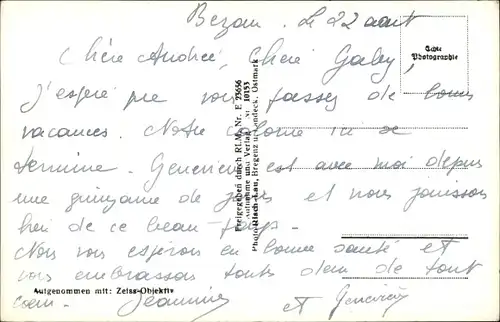 Bezau. Le 22 août
Chère Andrée, Chère Gaby,
J'espère que vous passez de bonnes
vacances. Notre colonie ici se
termine. Geneviève est avec moi depuis
une quinzaine de jours et nous jouissons
bien de ce beau temps.
Nous vous espérons en bonne santé et
vous embrassons toutes deux de tout
cœur. Jeannine
et Geneviève
Echte
Photographie
Freigegeben durch RLM. Nr. E 23656
Aufnahme und Verlag Nr. 10153
Photo Risch-Lau, Bregenz u. Landeck, Ostmark
Aufgenommen mit: Zeiss-Objektiv